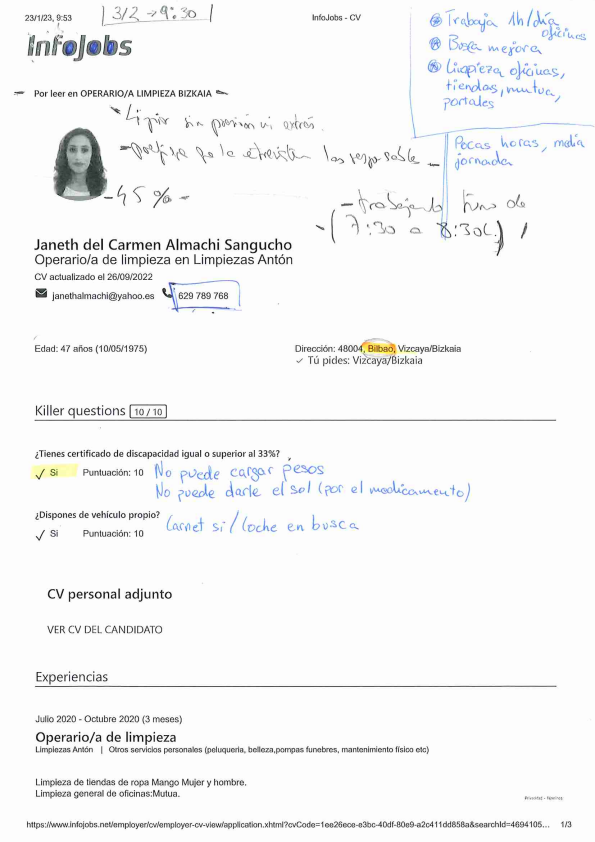 23/1/23, 9:53
3/2 → 9:30
InfoJobs - CV
InfoJobs
Trabaja 1h/día
oficinas
Busca mejora
Limpieza oficinas,
tiendas, mutua,
portales
Pocas horas, media
jornada
Por leer en OPERARIO/A LIMPIEZA BIZKAIA
sin
- 45% -
- trabajando
(7:30 a 8:30h.)
Janeth del Carmen Almachi Sangucho
Operario/a de limpieza en Limpiezas Antón
CV actualizado el 26/09/2022
janethalmachi@yahoo.es 629 789 768
Edad: 47 años (10/05/1975)
Dirección: 48004, Bilbao, Vizcaya/Bizkaia
✓ Tú pides: Vizcaya/Bizkaia
Killer questions 10 / 10
¿Tienes certificado de discapacidad igual o superior al 33%?
✓ Si Puntuación: 10
No puede cargar pesos
No puede darle el sol (por el medicamento)
¿Dispones de vehículo propio?
✓ Si Puntuación: 10
Carnet si / Coche en busca
CV personal adjunto
VER CV DEL CANDIDATO
Experiencias
Julio 2020 - Octubre 2020 (3 meses)
Operario/a de limpieza
Limpiezas Antón | Otros servicios personales (peluqueria, belleza,pompas funebres, mantenimiento físico etc)
Limpieza de tiendas de ropa Mango Mujer y hombre.
Limpieza general de oficinas:Mutua.
https://www.infojobs.net/employer/cv/employer-cv-view/application.xhtml?cvCode=1ee26ece-e3bc-40df-80e9-a2c411dd858a&searchId=4694105... 1/3